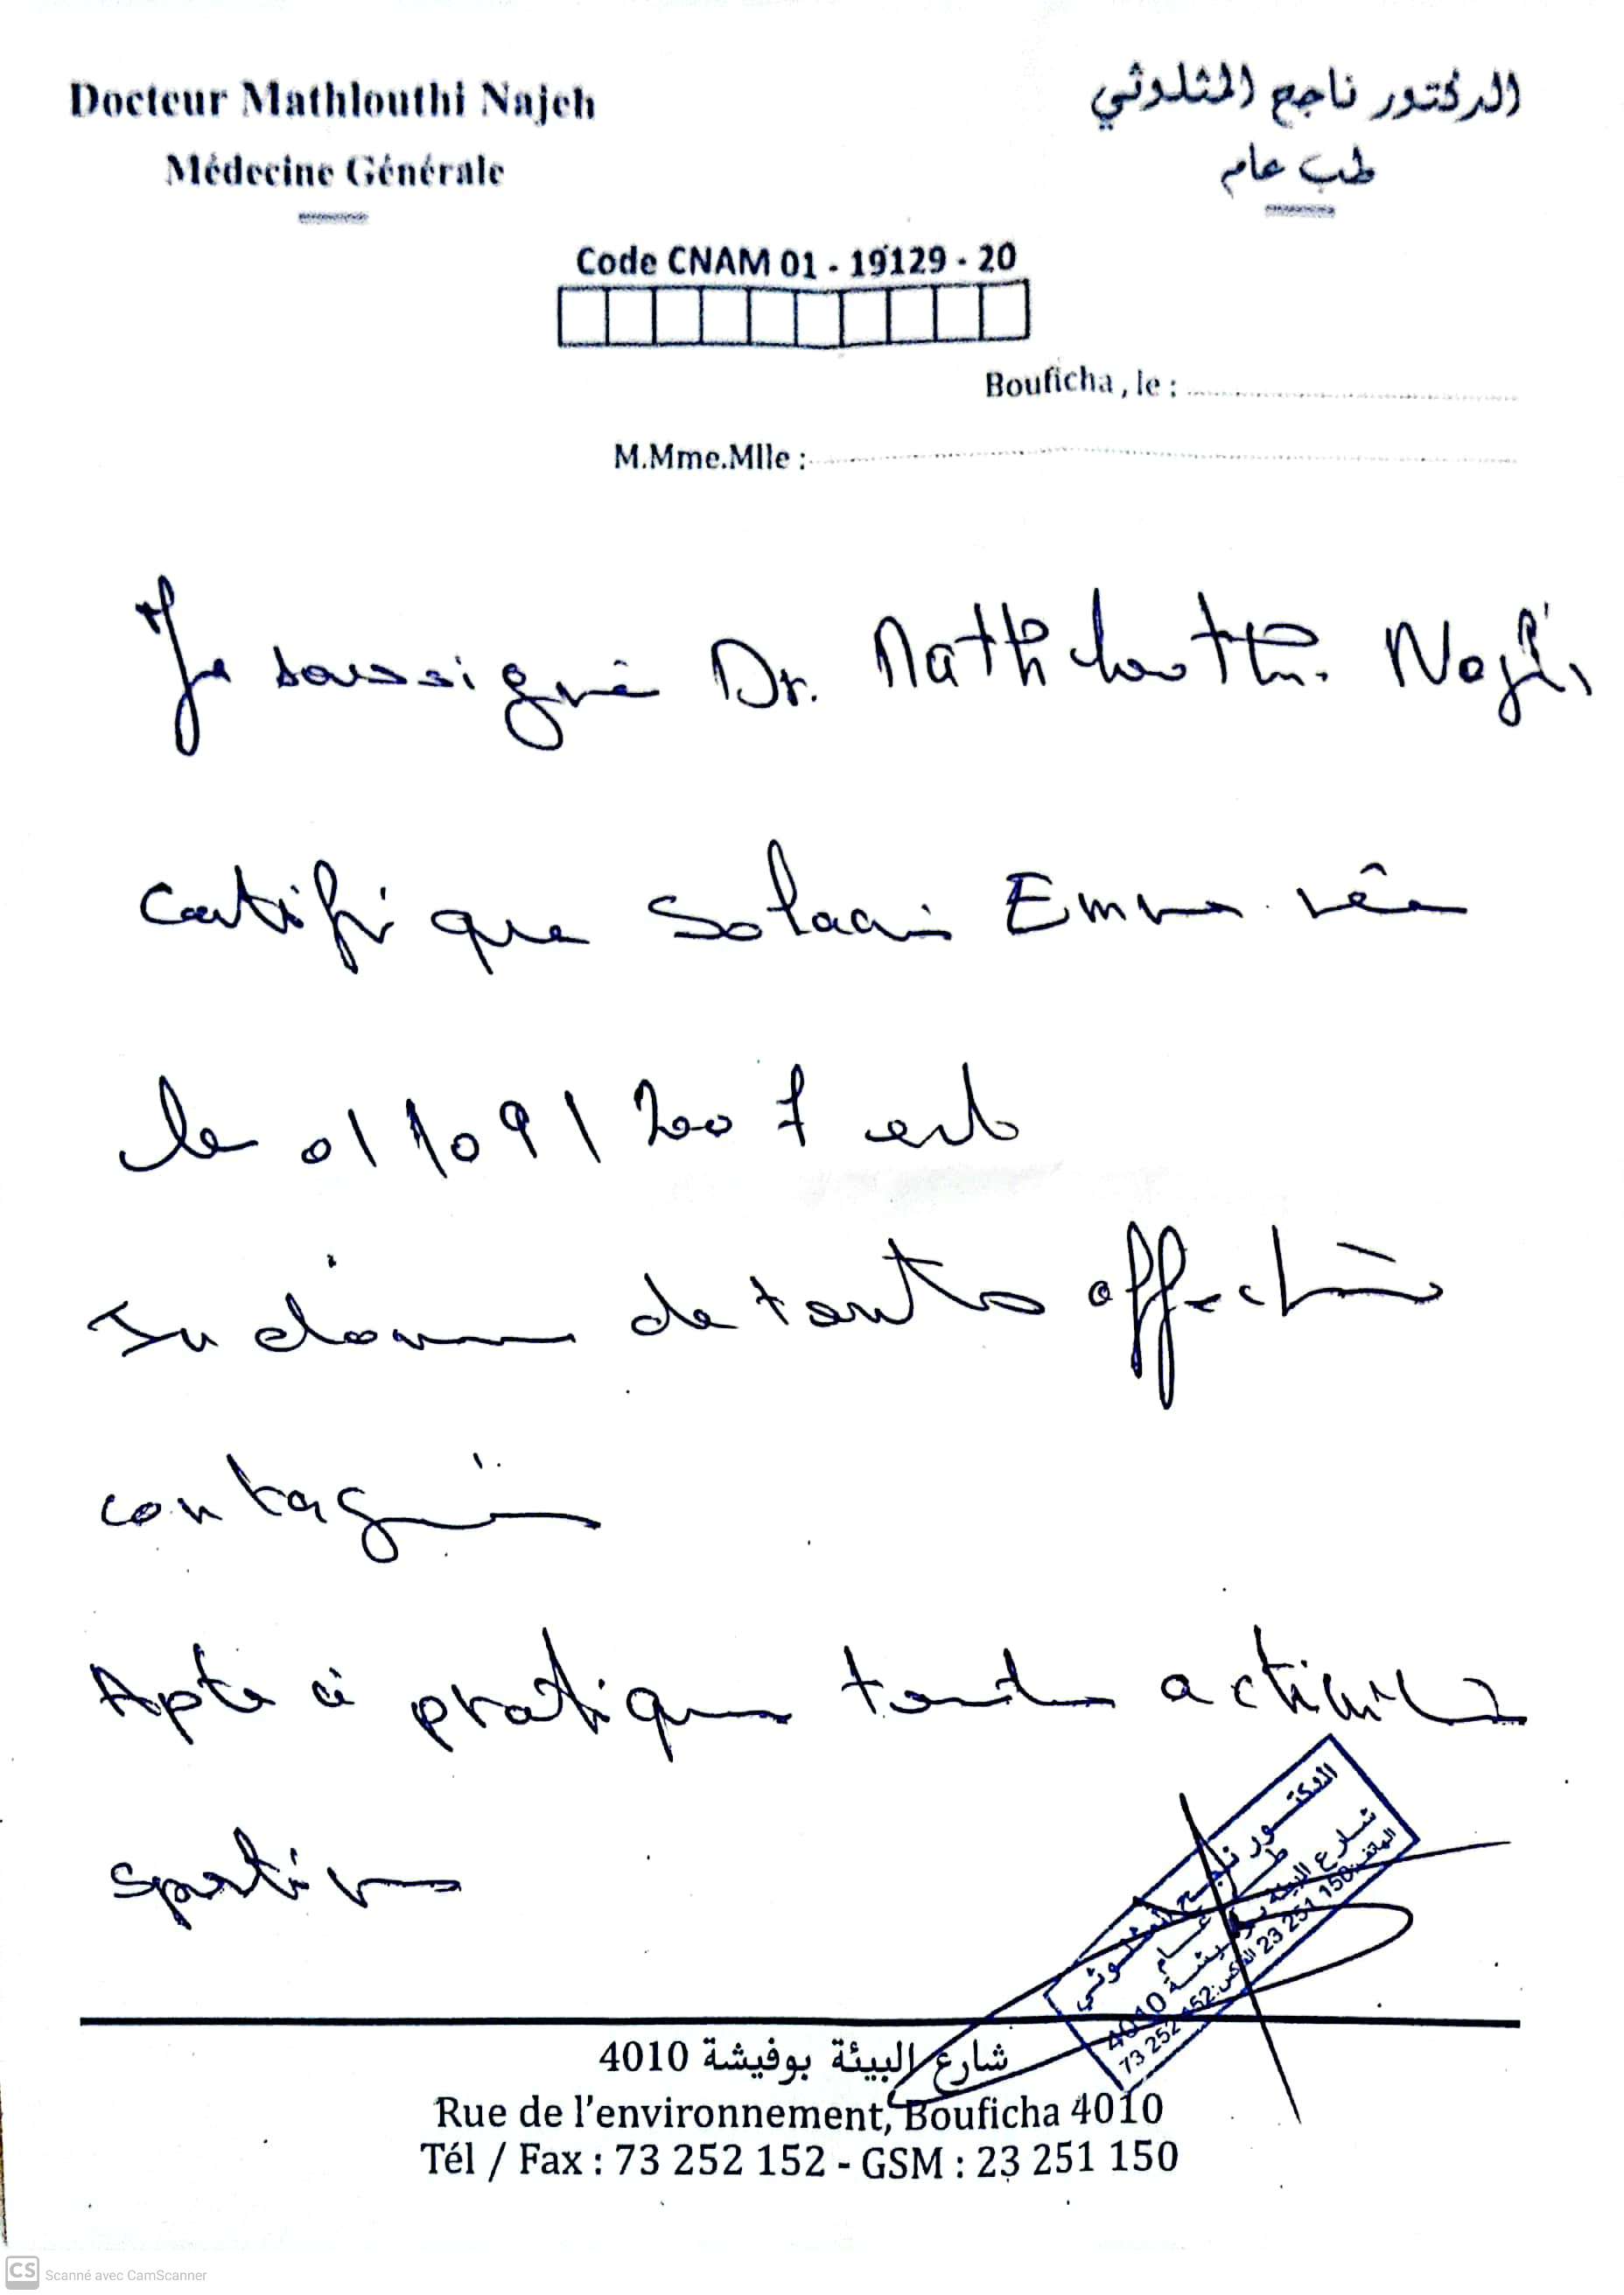 Docteur Mathlouthi Najeh
Médecine Générale
الدكتور ناجح المثلوثي
طب عام
Code CNAM 01 - 19129 - 20
Bouficha, le :
M.Mme.Mlle :
Je soussigné Dr. Mathlouthi Najeh
certifie que Emna née
le 01/09/2007 est
Indemne de toutes affections
contagieuse
Apte à pratiquer toute activité
sportive
الدكتور ناجح المثلوثي
طب عام
شارع البيئة بوفيشة 4010
الهاتف: 150 251 23 الفاكس: 152 252 73
شارع البيئة بوفيشة 4010
Rue de l'environnement, Bouficha 4010
Tél / Fax : 73 252 152 - GSM : 23 251 150
CS Scanné avec CamScanner